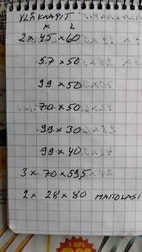 YLÄKAAPIT
K L
2 x 45 x 60
57 x 50
99 x 50
70 x 50
99 x 30
99 x 40
3 x 70 x 59,5
2 x 28 x 80 MAITOLASI